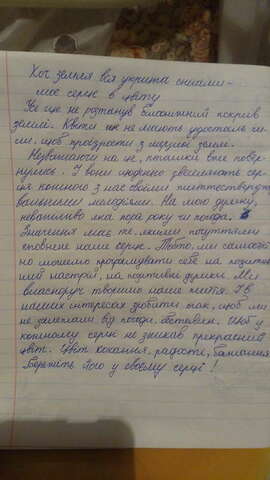 Хоч земля вся укрита снігами –
моє серце в цвіту
Ще не розтанув білосніжний покрив
землі. Квіти ще не мають удосталь си-
ли, щоб прорости з мерзлої землі.
Незважаючи на це, пташки вже повер-
нулись. І вони щоденно звеселяють сер-
ця кожного з нас своїми життєствердж
вальними мелодіями. На мою думку,
неважливо яка пора року чи погода.
Значення має те, якими почуттями
сповнене наше серце. Тобто, ми самості
но можемо програмувати себе на позитив
ний настрій, на позитивні думки. Ми
власноруч творимо наше життя. І в
наших інтересах зробити так, щоб ми
не залежали від погоди, обставин. Щоб у
кожному серці не зникав прекрасний
цвіт. Цвіт кохання, радості, бажання
Бережіть його у своєму серці!